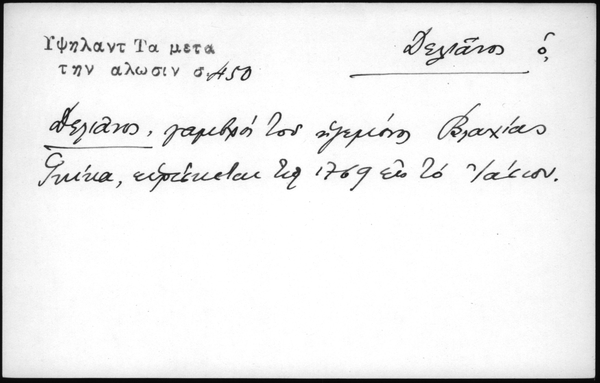 Υψηλαντ Τα μετα
την αλωσιν σ. 450
Δελιᾶνος ὁ,
Δελιᾶνος, γαμβρός τοῦ ἡγεμόνος Βλαχίας
Γκίκα, εὑρίσκεται τῷ 1769 εἰς τό Ἰάσιον.